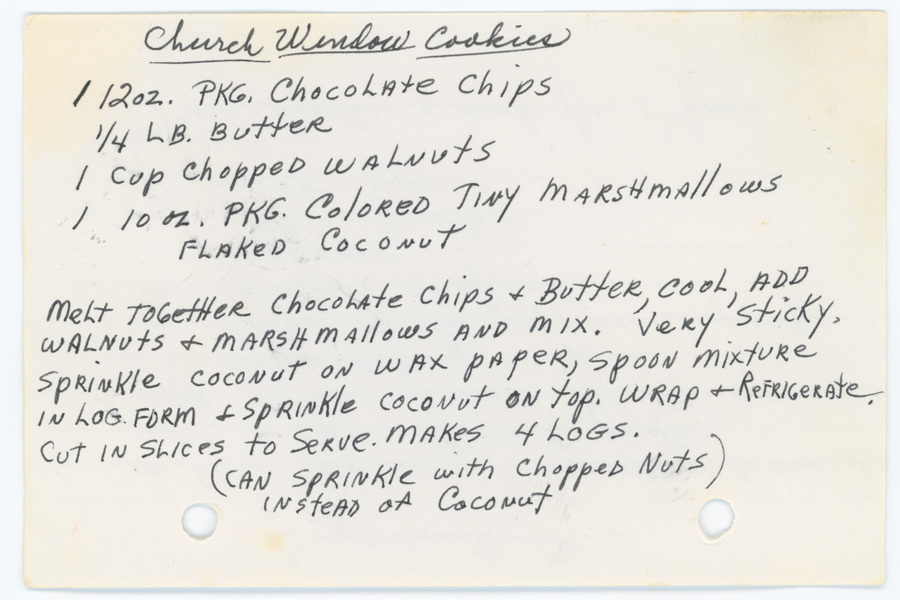 Church Window Cookies
1 12oz. PKG. Chocolate Chips
1/4 LB. Butter
1 Cup Chopped WALNUTS
1 10 oz. PKG. Colored Tiny MARSHMALLOWS
FLAKED COCONUT
Melt Together Chocolate Chips & Butter, Cool, ADD
WALNUTS & MARSHMALLOWS AND MIX. Very Sticky.
SPRINKLE COCONUT ON WAX PAPER, SPOON MIXTURE
IN LOG FORM & SPRINKLE COCONUT ON TOP. WRAP & REFRIGERATE.
CUT IN SLICES TO SERVE. MAKES 4 LOGS.
(CAN SPRINKLE with Chopped Nuts)
INSTEAD OF COCONUT